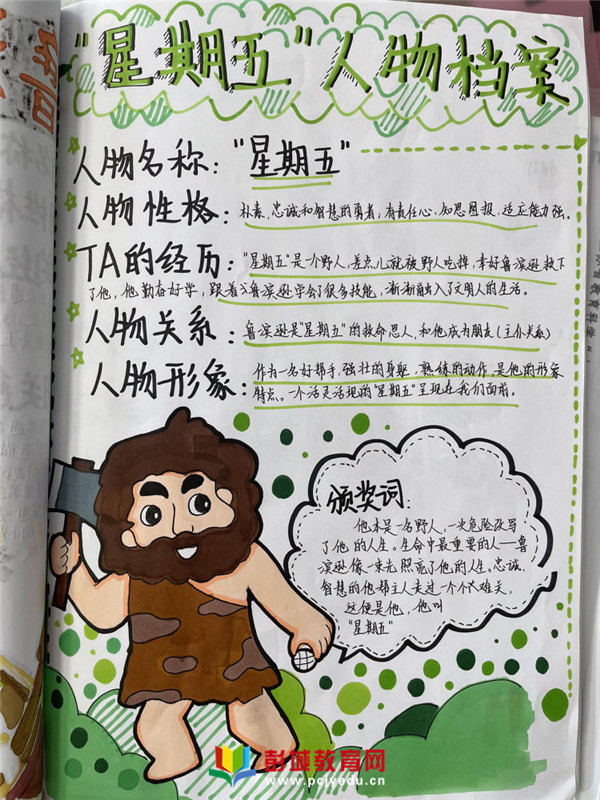 "星期五"人物档案
人物名称："星期五"
人物性格：朴素、忠诚和智慧的勇者，有责任心，知恩图报，适应能力强。
TA的经历："星期五"是个野人，差点儿就被野人吃掉，幸好鲁滨逊救下
了他，他勤奋好学，跟着鲁滨逊学会了很多技能，渐渐融入了文明人的生活。
人物关系：鲁滨逊是"星期五"的救命恩人，和他成为朋友（主仆关系）
人物形象：作为一名好帮手，强壮的身躯，熟练的动作，是他的形象
特点。一个活灵活现的"星期五"呈现在我们面前。
颁奖词：
他本是一名野人，一次危险改写
了他的人生。生命中最重要的人——鲁
滨逊像一束光照亮了他的人生。忠诚、
智慧的他帮主人走过一个个大难关，
这便是他，他叫
"星期五"
彭城教育网
www.pcjyedu.cn